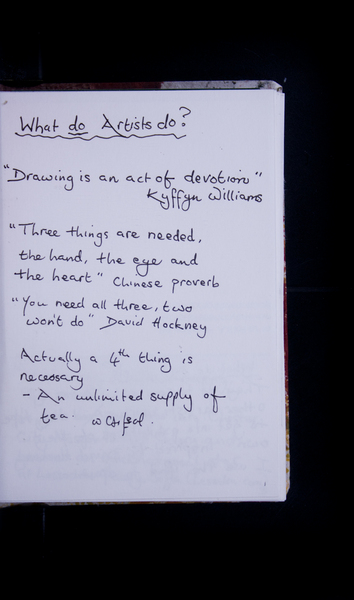 What do Artists do?
"Drawing is an act of devotion"
Kyffyn Williams
"Three things are needed,
the hand, the eye and
the heart" Chinese proverb
"You need all three, two
won't do" David Hockney
Actually a 4th thing is
necessary
- An unlimited supply of
tea.